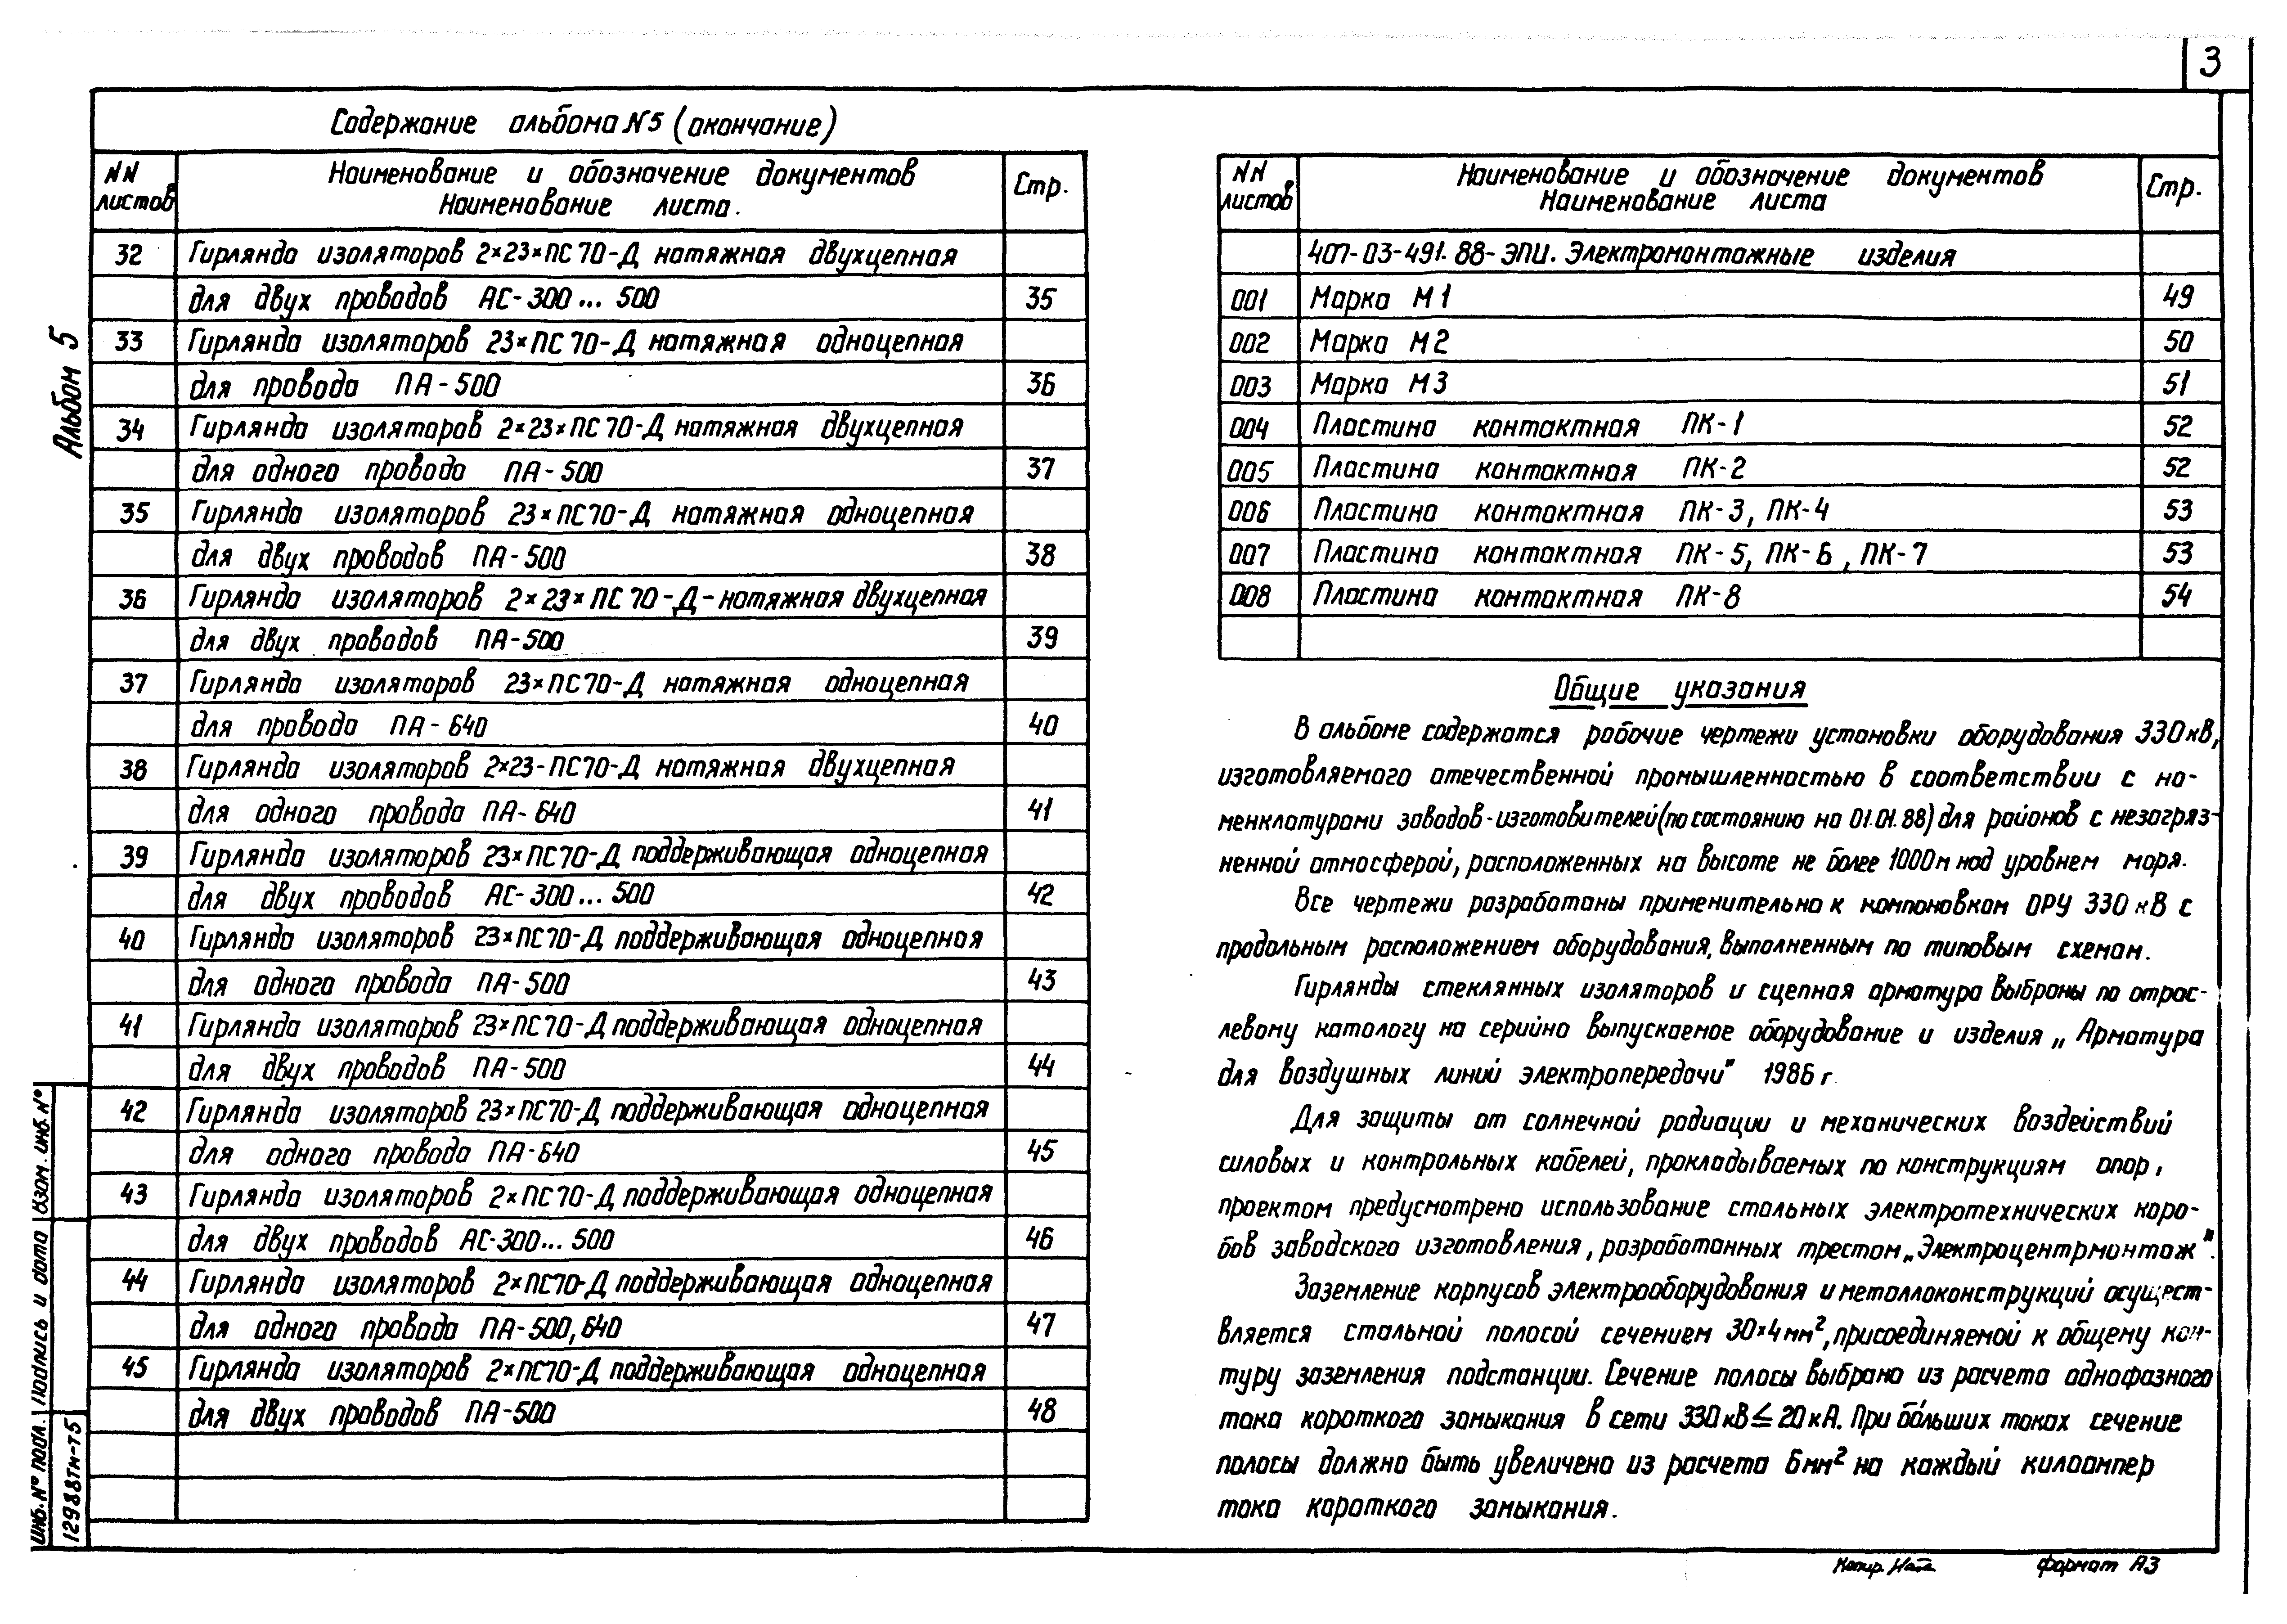 3
Содержание альбома N5 (окончание)
NN листов
Наименование и обозначение документов
Наименование листа.
Стр.
32 Гирлянда изоляторов 2×23×ПС70-Д натяжная двухцепная
для двух проводов АС-300... 500 35
33 Гирлянда изоляторов 23×ПС70-Д натяжная одноцепная
для провода ПА-500 36
34 Гирлянда изоляторов 2×23×ПС70-Д натяжная двухцепная
для одного провода ПА-500 37
35 Гирлянда изоляторов 23×ПС70-Д натяжная одноцепная
для двух проводов ПА-500 38
36 Гирлянда изоляторов 2×23×ПС70-Д-натяжная двухцепная
для двух проводов ПА-500 39
37 Гирлянда изоляторов 23×ПС70-Д натяжная одноцепная
для провода ПА-640 40
38 Гирлянда изоляторов 2×23-ПС70-Д натяжная двухцепная
для одного провода ПА-640 41
39 Гирлянда изоляторов 23×ПС70-Д поддерживающая одноцепная
для двух проводов АС-300...500 42
40 Гирлянда изоляторов 23×ПС70-Д поддерживающая одноцепная
для одного провода ПА-500 43
41 Гирлянда изоляторов 23×ПС70-Д поддерживающая одноцепная
для двух проводов ПА-500 44
42 Гирлянда изоляторов 23×ПС70-Д поддерживающая одноцепная
для одного провода ПА-640 45
43 Гирлянда изоляторов 2×ПС70-Д поддерживающая одноцепная
для двух проводов АС-300... 500 46
44 Гирлянда изоляторов 2×ПС70-Д поддерживающая одноцепная
для одного провода ПА-500,640 47
45 Гирлянда изоляторов 2×ПС70-Д поддерживающая одноцепная
для двух проводов ПА-500 48
NN листов
Наименование и обозначение документов
Наименование листа
Стр.
407-03-491.88-ЭПИ. Электромонтажные изделия
001 Марка М1 49
002 Марка М2 50
003 Марка М3 51
004 Пластина контактная ПК-1 52
005 Пластина контактная ПК-2 52
006 Пластина контактная ПК-3, ПК-4 53
007 Пластина контактная ПК-5, ПК-6, ПК-7 53
008 Пластина контактная ПК-8 54
Общие указания
В альбоме содержатся рабочие чертежи установки оборудования 330кВ,
изготовляемого отечественной промышленностью в соответствии с но-
менклатурами заводов-изготовителей(по состоянию на 01.01.88) для районов с незагряз-
ненной атмосферой, расположенных на высоте не более 1000м над уровнем моря.
Все чертежи разработаны применительно к компоновкам ОРУ 330 кВ с
продольным расположением оборудования, выполненным по типовым схемам.
Гирлянды стеклянных изоляторов и сцепная арматура выбраны по отрас-
левому каталогу на серийно выпускаемое оборудование и изделия „Арматура
для воздушных линий электропередачи" 1986 г.
Для защиты от солнечной радиации и механических воздействий
силовых и контрольных кабелей, прокладываемых по конструкциям опор,
проектом предусмотрено использование стальных электротехнических коро-
бов заводского изготовления, разработанных трестом „Электроцентрмонтаж".
Заземление корпусов электрооборудования и металлоконструкций осущест-
вляется стальной полосой сечением 30×4мм², присоединяемой к общему кон-
туру заземления подстанции. Сечение полосы выбрано из расчета однофазного
тока короткого замыкания в сети 330 кВ ≤ 20 кА. При бóльших токах сечение
полосы должно быть увеличено из расчета 6мм² на каждый килоампер
тока короткого замыкания.
Альбом 5
Инв. № подл. Подпись и дата Взам. инв №
12988тм-т5
Копир. Ната
Формат А3